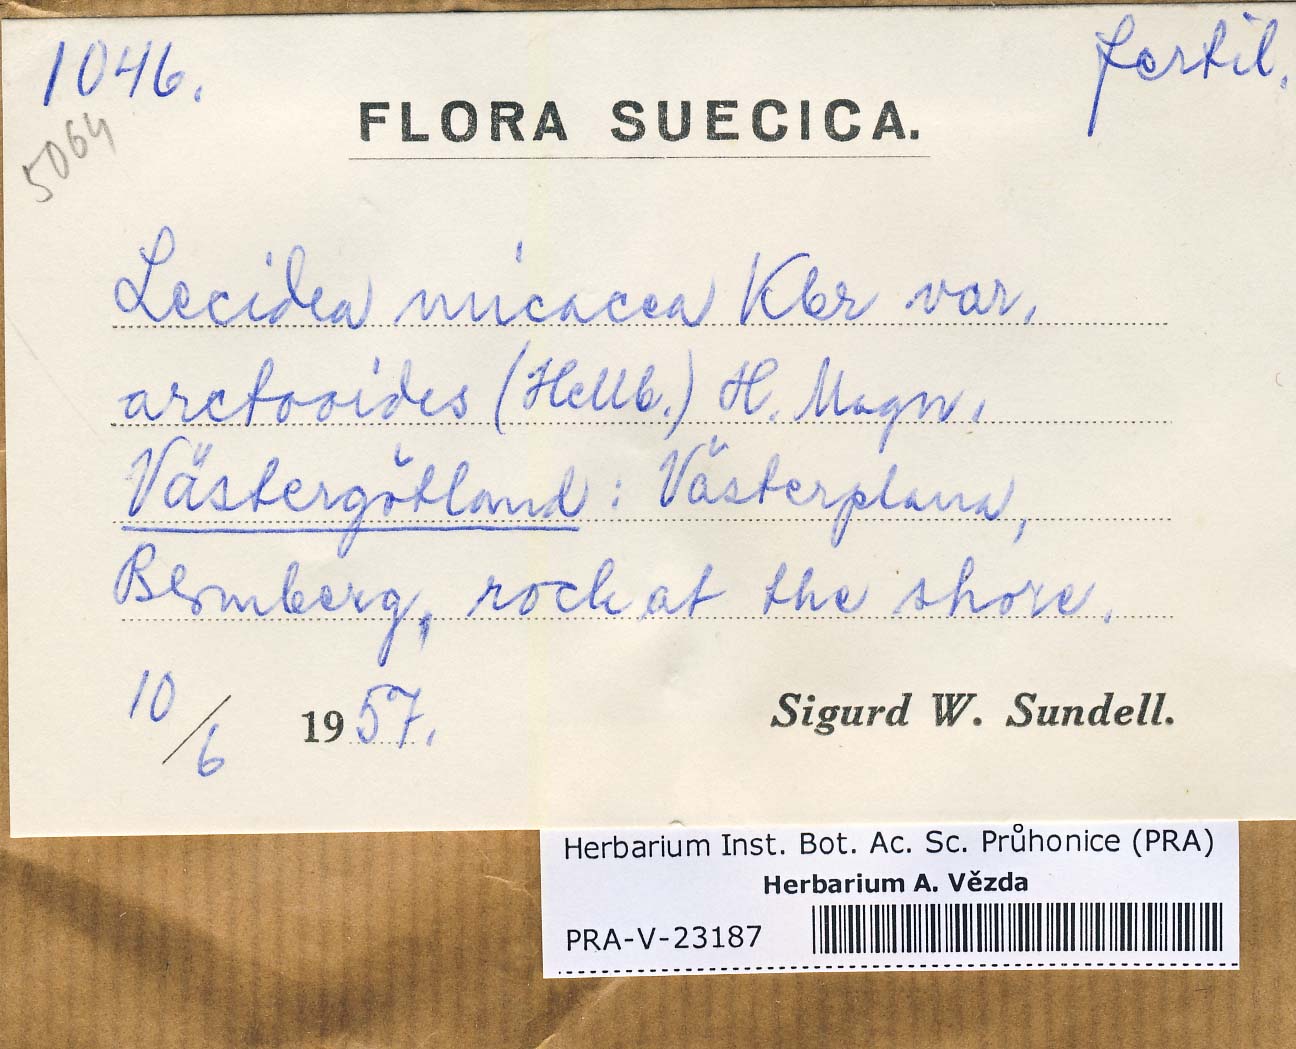 1046.
fertil.
5064
FLORA SUECICA.
Lecidea micacea Kbr var.
arctooides (Hellb.) H. Magn.
Västergötland: Västerplana,
Blomberg, rock at the shore.
10/6 1957.
Sigurd W. Sundell.
Herbarium Inst. Bot. Ac. Sc. Průhonice (PRA)
Herbarium A. Vězda
PRA-V-23187